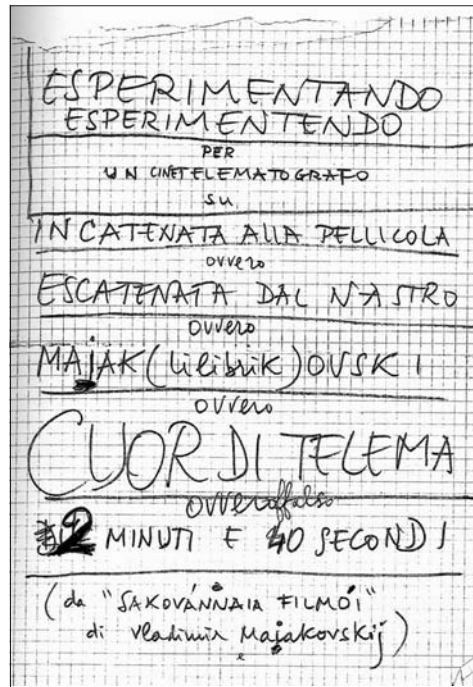 ESPERIMENTANDO
ESPERIMENTENDO
PER
UN CINETELEMATOGRAFO
SU
INCATENATA ALLA PELLICOLA
OVVERO
ESCATENATA DAL NASTRO
OVVERO
MAJAK(lilibrik)OVSKI
OVVERO
CUOR DI TELEMA
OVVERoffalso
2 MINUTI E 40 SECONDI
(da "SAKOVÁNNAIA FILMÓI"
di Vladimir Majakovskij)